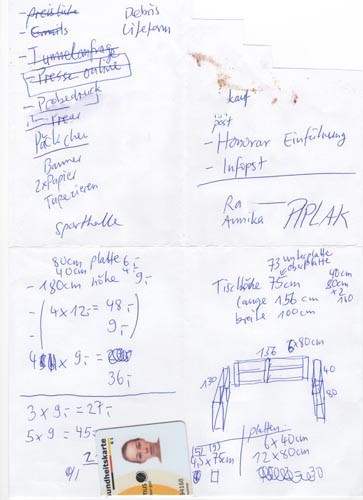 - Preisliste
- Emails
- Tunnelanfrage
- Presse online
- Probedruck
Päckchen
Banner
2x Papier
Tapezieren
Sporthalle
Debris
Lifeform
kauf
- Honorar Einführung
- Infopst
Ra
Annika
PIPLAK
80cm platte 6,-
40cm 4,-
- 180cm höhe 9,-
- (4 x 12,- = 48,-
9,-
x 9,- =
36,-
3 x 9,- = 27,-
5 x 9,- = 45,-
73 unterplatte
Tischhöhe 75cm
länge 156 cm
breite 100cm
40cm
80cm
x2
160
156
x80cm
170
40
80
platten
6 x 40cm
12 x 80cm
30
undheitskarte